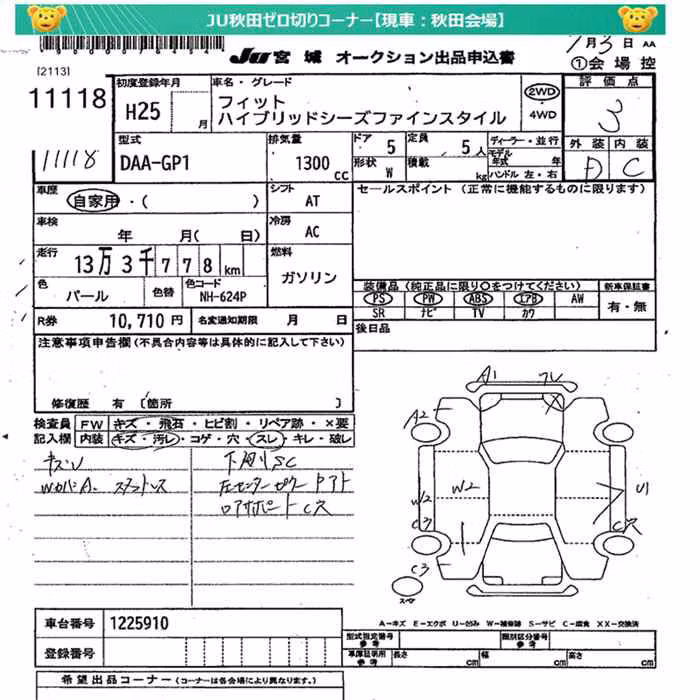 JU秋田ゼロ切りコーナー【現車：秋田会場】
JU 宮城 オークション出品申込書
1月3日 AA
[2113]
①会場控
11118
初度登録年月
H25
月
車名・グレード
フィット
ハイブリッドシーズファインスタイル
2WD
4WD
評価点
3
11118
型式
DAA-GP1
排気量
1300
CC
ドア
5
定員
5人
形状
W
積載
kg
ディーラー・並行
モデル年式
年
ハンドル 左・右
外装
内装
D
C
車歴
自家用・( )
シフト
AT
セールスポイント (正常に機能するものに限ります)
車検
年 月( 日)
冷房
AC
走行
13万3千778km
燃料
ガソリン
色
パール
色替
色コード
NH-624P
装備品 (純正品に限り○をつけてください)
新車保証書
PS PW ABS エアB AW
SR ナビ TV カワ
有・無
R券
10,710円
名変通知期限
月 日
後日品
注意事項申告欄 (不具合内容等は具体的に記入して下さい)
修復歴 有 [箇所 ]
検査員記入欄
FW キズ・飛石・ヒビ割・リペア跡・×要
内装 キズ・汚レ・コゲ・穴・スレ・キレ・破レ
下廻りSC
ロアサポートC穴
A1
A2
W2
W2
U1
C3
C穴
C3
A-キズ E-エクボ U-凹み W-補修跡 S-サビ C-腐食 XX-交換済
車台番号
1225910
登録番号
型式指定番号
参考
類別区分番号
参考
車庫証明用
参考
長さ
cm
幅
cm
高さ
cm
希望出品コーナー (コーナーは各会場により異なります。)